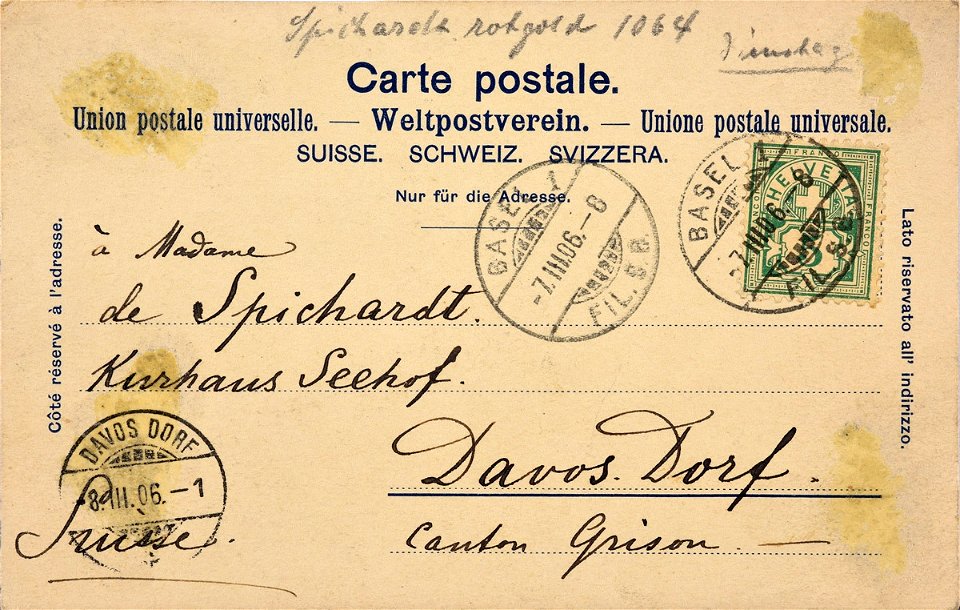 Spichardt rotgold 1064
Dienstag
Carte postale.
Union postale universelle. — Weltpostverein. — Unione postale universale.
SUISSE. SCHWEIZ. SVIZZERA.
Nur für die Adresse.
BASEL 1
-7.III.06.-8
FIL. S.B.
BASEL 1
-7.III.06.-8
FIL. S.B.
FRANCO
HELVETIA
Côté réservé à l'adresse.
Lato riservato all' indirizzo.
à Madame
de Spichardt.
Kurhaus Seehof.
Davos. Dorf.
Canton Grison. —
DAVOS DORF
8.III.06.-1
Suisse.